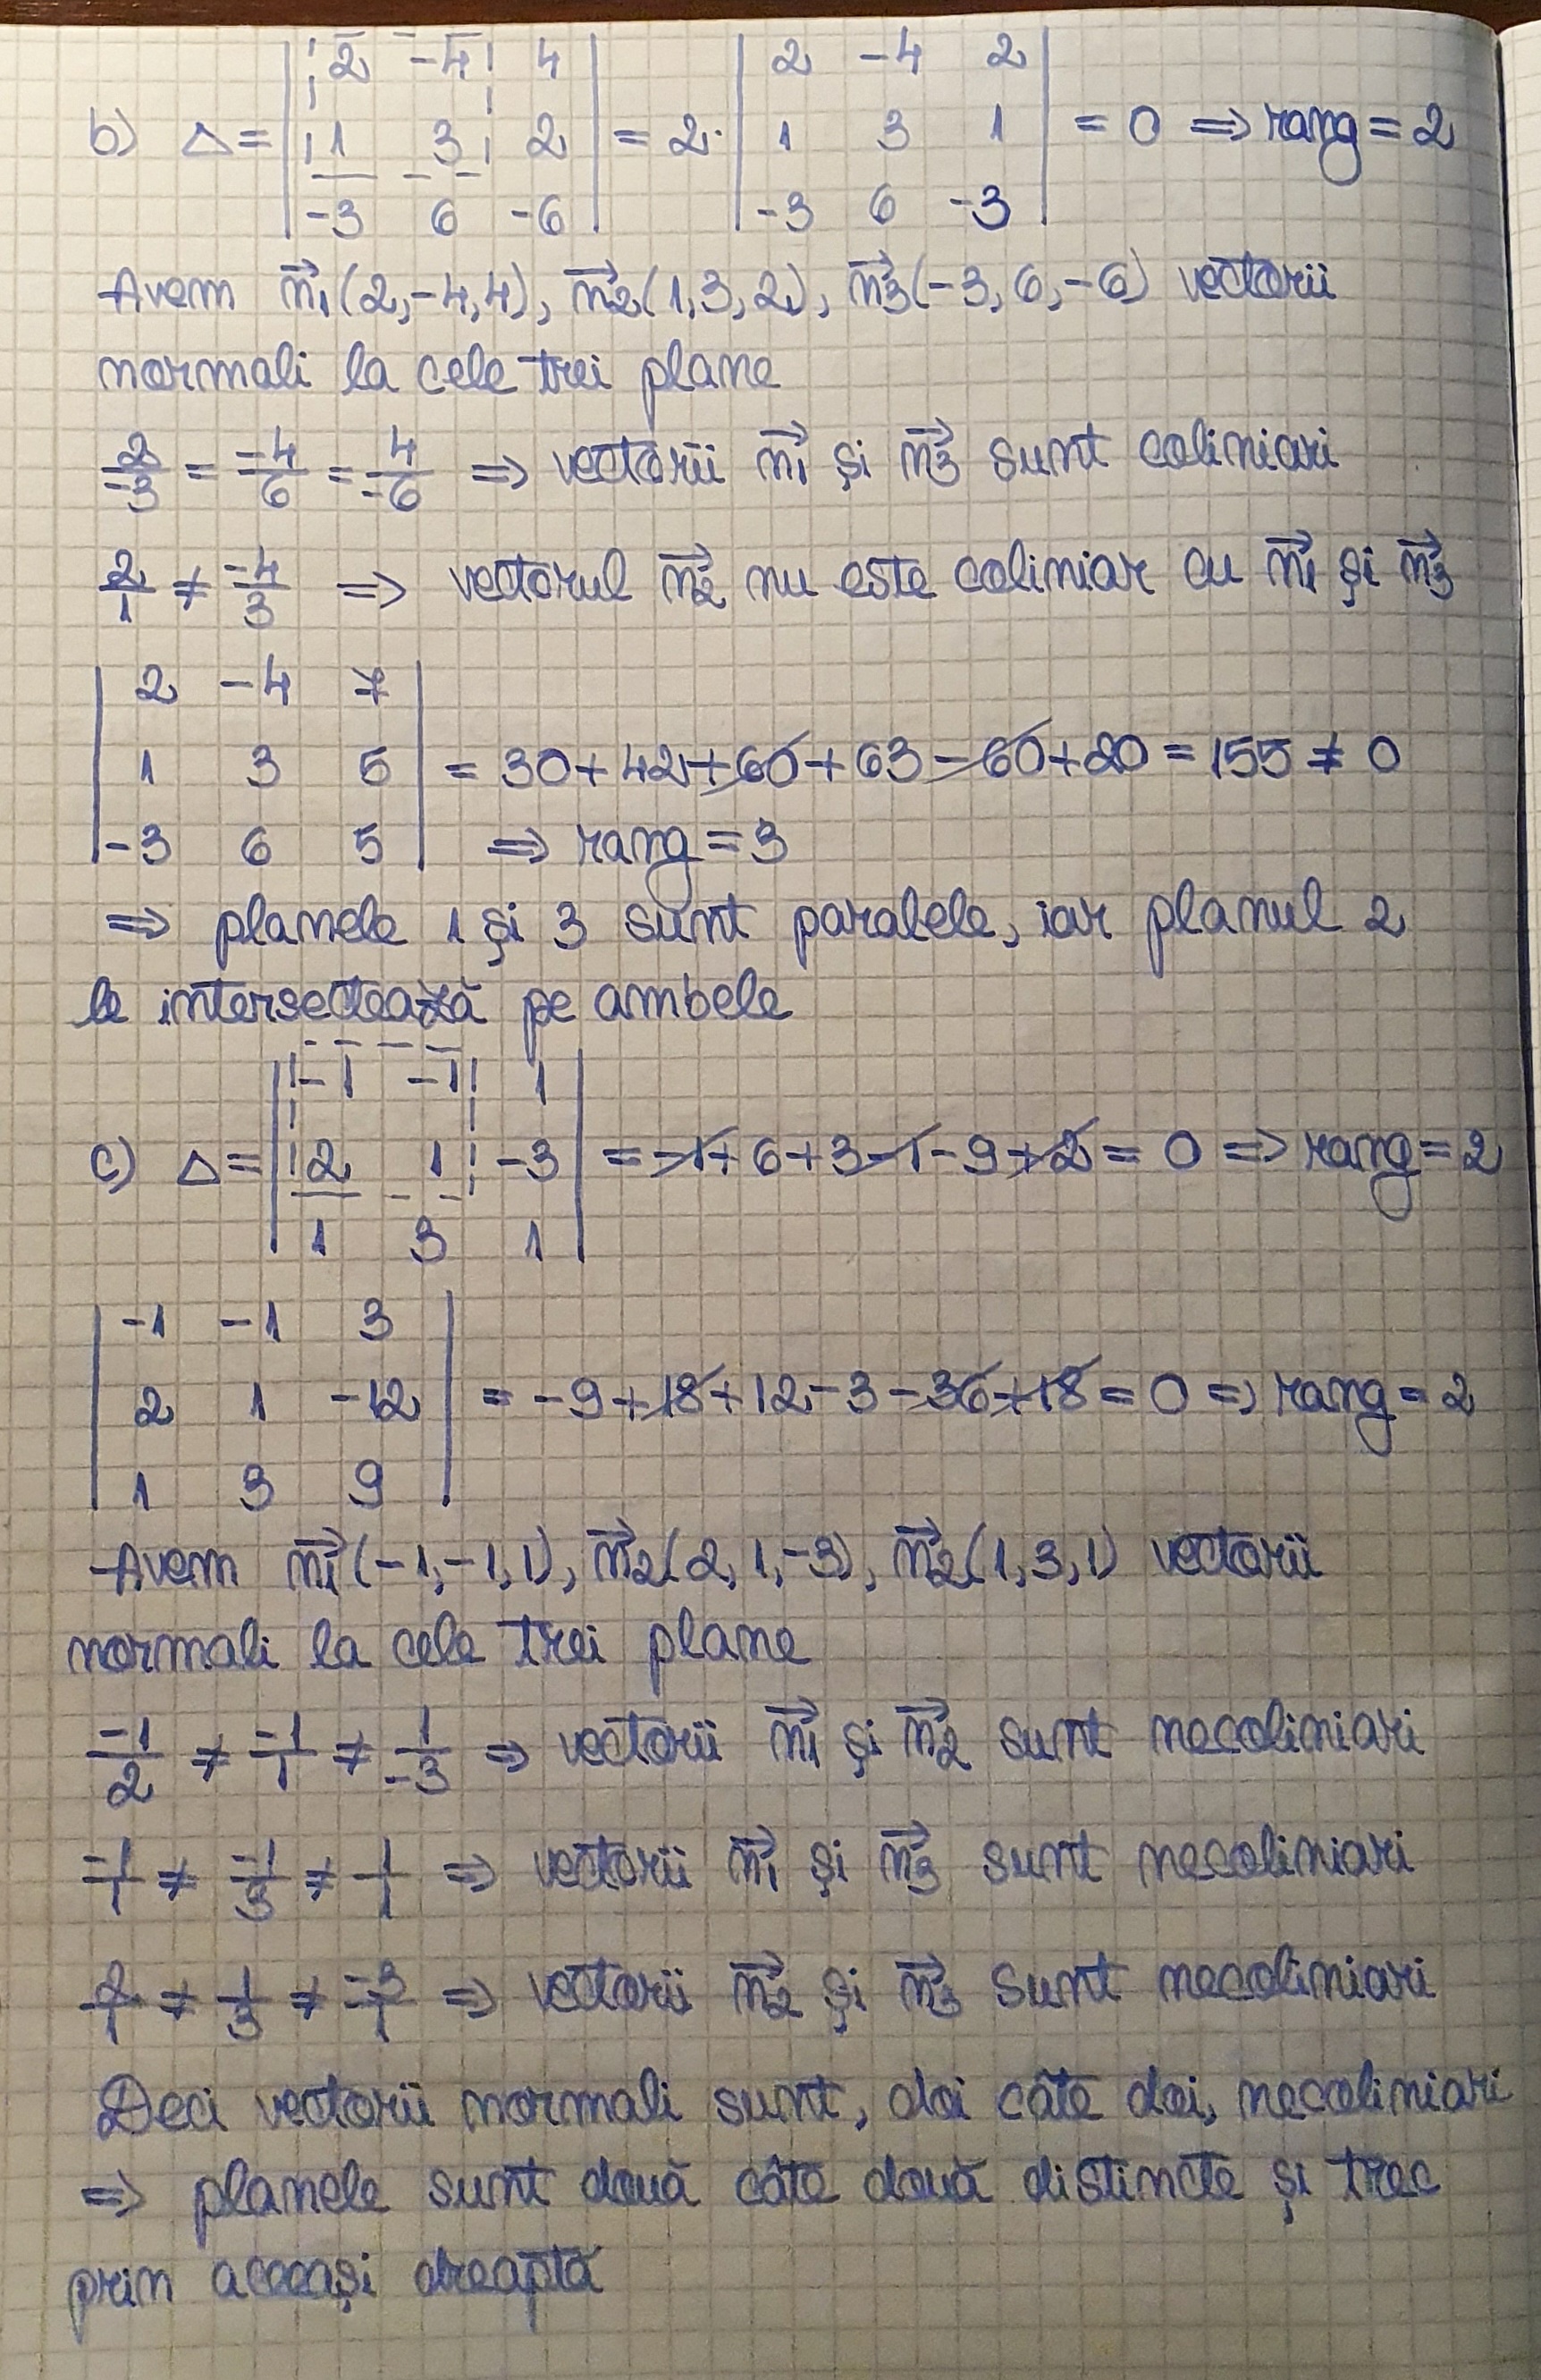 b) Δ = | 2 -4 4 ; 1 3 2 ; -3 6 -6 | = 2· | 2 -4 2 ; 1 3 1 ; -3 6 -3 | = 0 ⇒ rang = 2
Avem n₁⃗(2,-4,4), n₂⃗(1,3,2), n₃⃗(-3,6,-6) vectorii
normali la cele trei plane
2/-3 = -4/6 = 4/-6 ⇒ vectorii n₁⃗ și n₃⃗ sunt coliniari
2/1 ≠ -4/3 ⇒ vectorul n₂⃗ nu este coliniar cu n₁⃗ și n₃⃗
| 2 -4 7 ; 1 3 5 ; -3 6 5 | = 30+42+60+63-60+20 = 155 ≠ 0
⇒ rang = 3
⇒ planele 1 și 3 sunt paralele, iar planul 2
le intersectează pe ambele
c) Δ = | -1 -1 1 ; 2 1 -3 ; 1 3 1 | = -1+6+3-1-9+2 = 0 ⇒ rang = 2
| -1 -1 3 ; 2 1 -12 ; 1 3 9 | = -9+18+12-3-36+18 = 0 ⇒ rang = 2
Avem n₁⃗(-1,-1,1), n₂⃗(2,1,-3), n₂⃗(1,3,1) vectorii
normali la cele trei plane
-1/2 ≠ -1/1 ≠ 1/-3 ⇒ vectorii n₁⃗ și n₂⃗ sunt necoliniari
-1/1 ≠ -1/3 ≠ 1/1 ⇒ vectorii n₁⃗ și n₃⃗ sunt necoliniari
2/1 ≠ 1/3 ≠ -3/1 ⇒ vectorii n₂⃗ și n₃⃗ sunt necoliniari
Deci vectorii normali sunt, doi câte doi, necoliniari
⇒ planele sunt două câte două distincte și trec
prin aceeași dreaptă